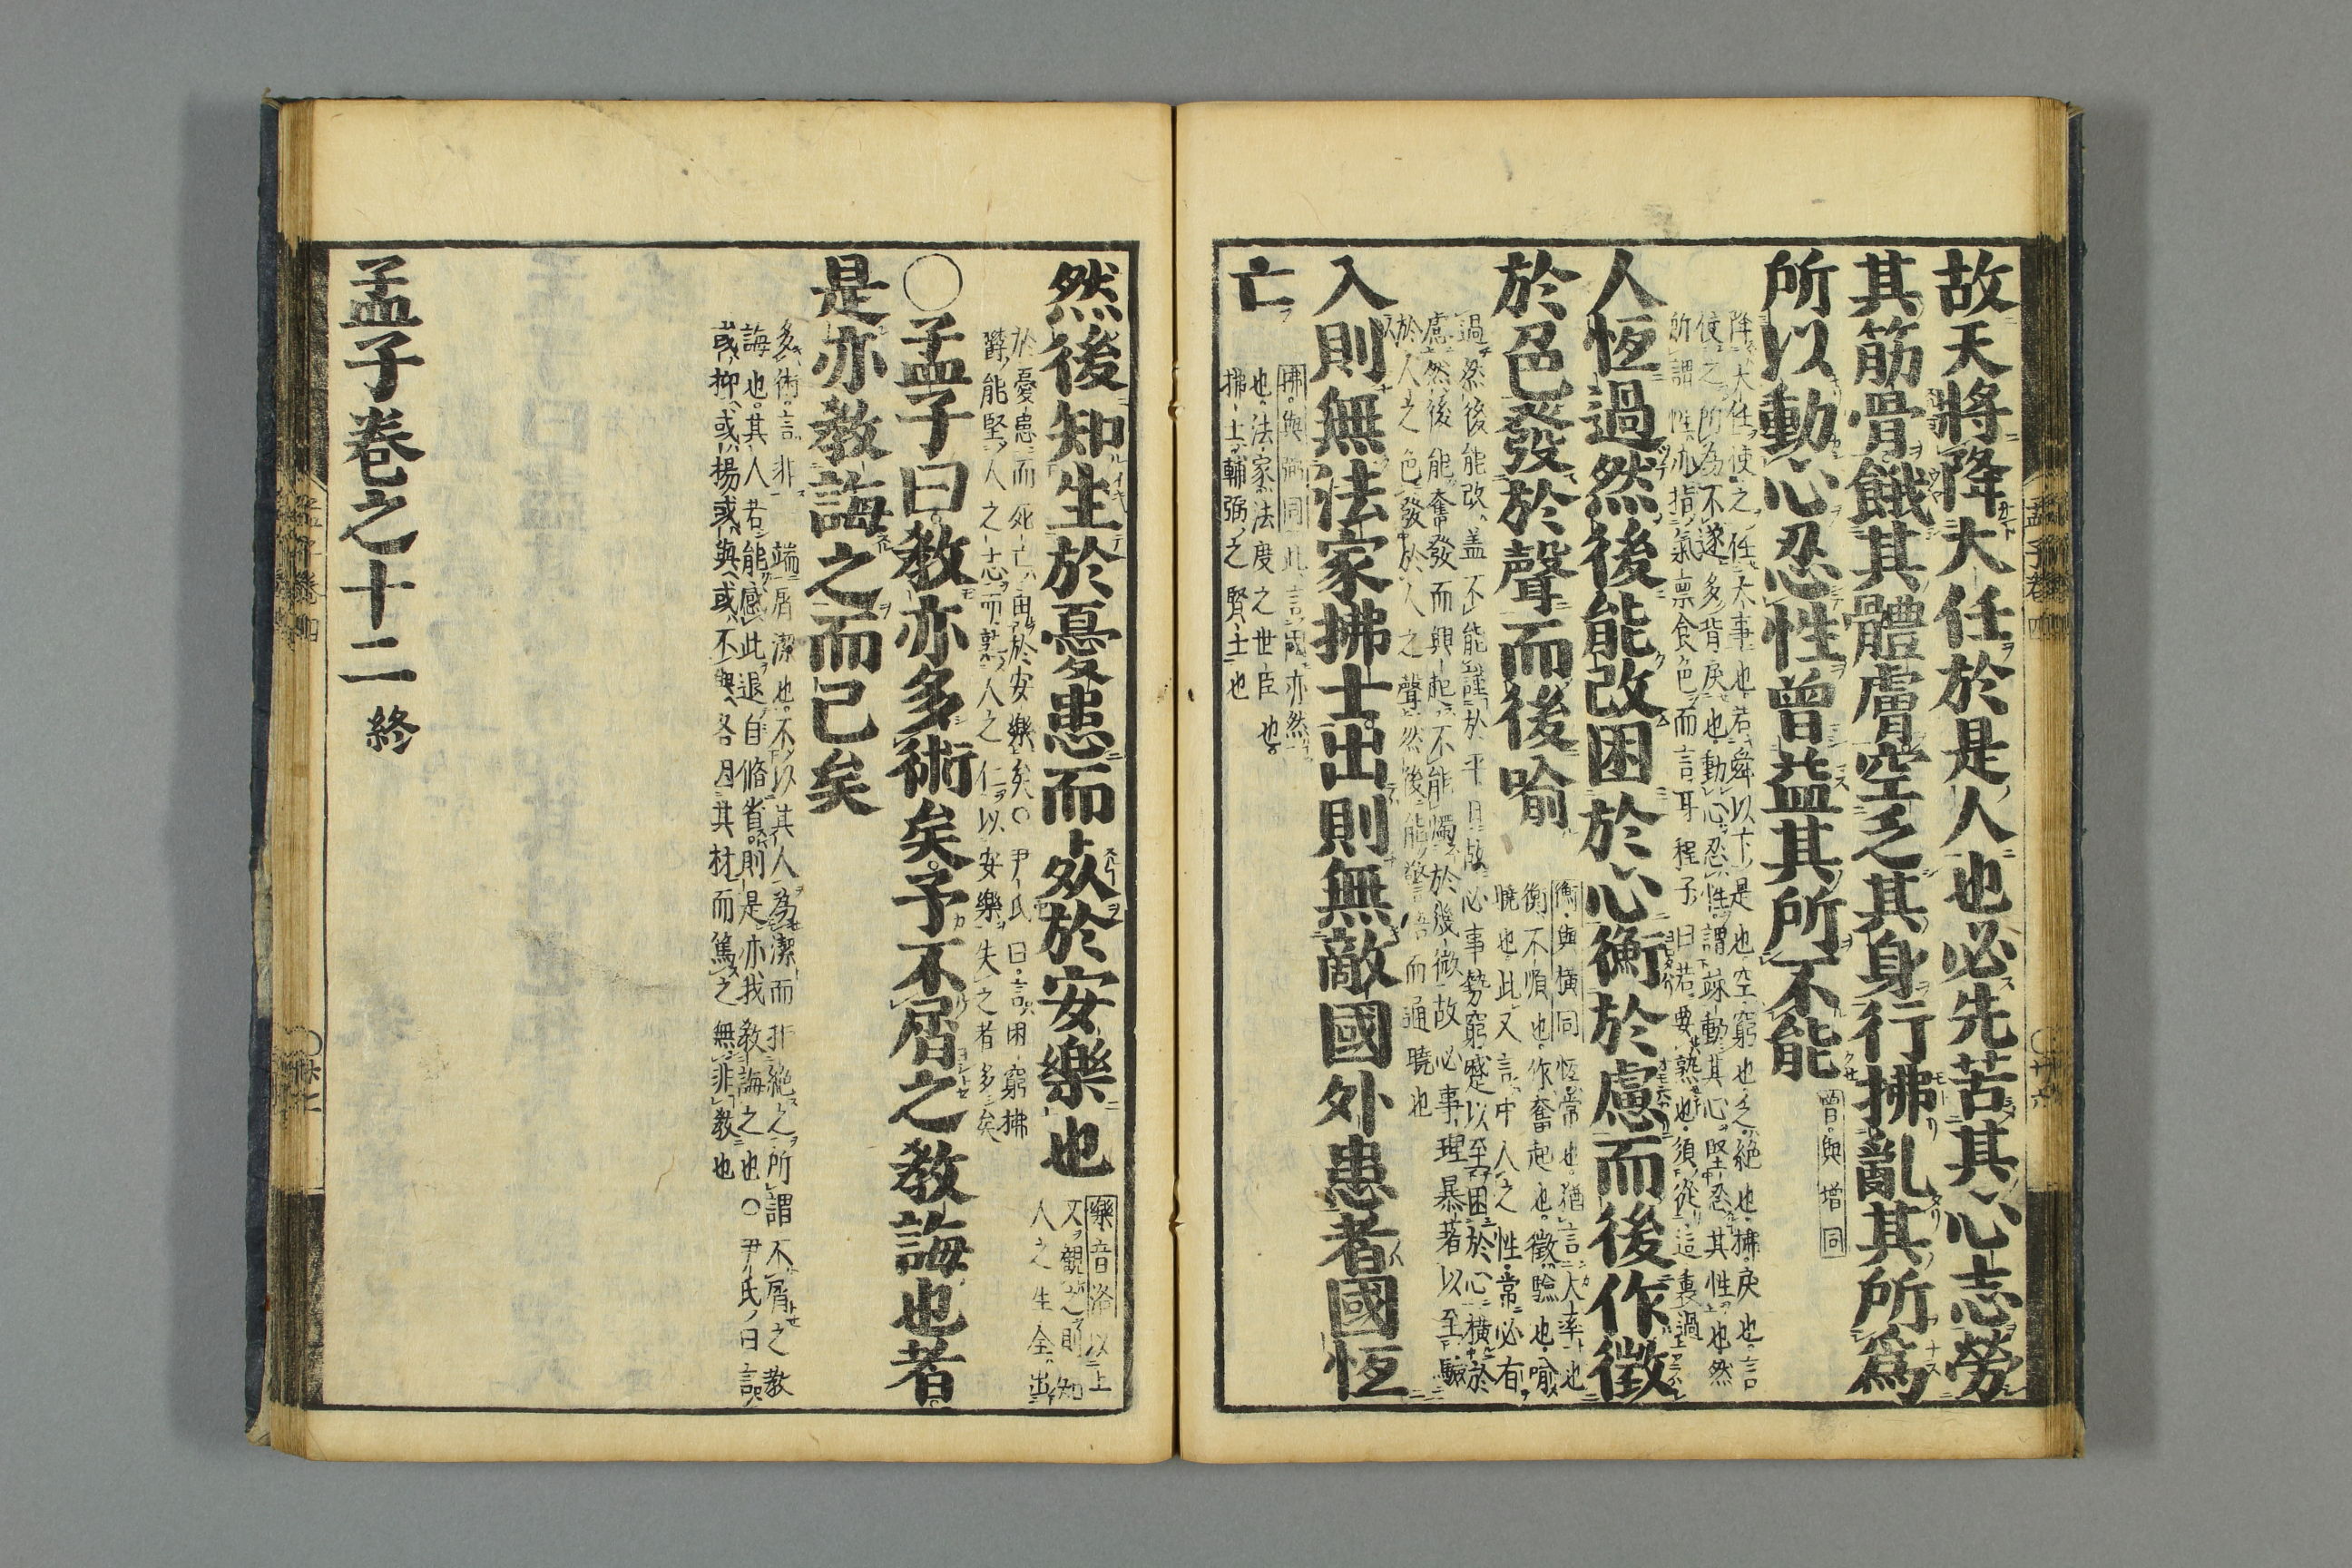 故天將降大任於是人也必先苦其心志勞
其筋骨餓其體膚空乏其身行拂亂其所爲
所以動心忍性曾益其所不能
曾與增同
降大任使之任大事也若舜以下是也空窮也乏絶也拂戾也言
使之所為不遂多背戾也動心忍性謂竦動其心堅忍其性也然
所謂性亦指氣禀食色而言耳程子曰若要熟也須從這裏過
人恆過然後能改困於心衡於慮而後作徵
於色發於聲而後喻
衡與橫同恆常也猶言大率也
衡不順也作奮起也徵驗也喻
曉也此又言中人之性常必有
過然後能改盖不能謹於平日故必事勢窮蹙以至困於心橫於
慮然後能奮發而興起不能燭於幾微故必事理暴著以至驗
於人之色發於人之聲然後能警悟而通曉也
入則無法家拂士出則無敵國外患者國恆
亡
拂與弼同此言國亦然
也法家法度之世臣也
拂士輔弼之賢士也
然後知生於憂患而死於安樂也
樂音洛以上
文觀之則知
人之生全出
於憂患而死亡由於安樂矣○尹氏曰言困窮拂
鬱能堅人之志而熟人之仁以安樂失之者多矣
○孟子曰教亦多術矣予不屑之教誨也者
是亦教誨之而已矣
多術言非一端屑潔也不以其人為潔而拒絶之所謂不屑之教
誨也其人若能感此退自脩省則是亦我教誨之也○尹氏曰言
或抑或揚或與或不與各因其材而篤之無非教也
孟子卷之十二終